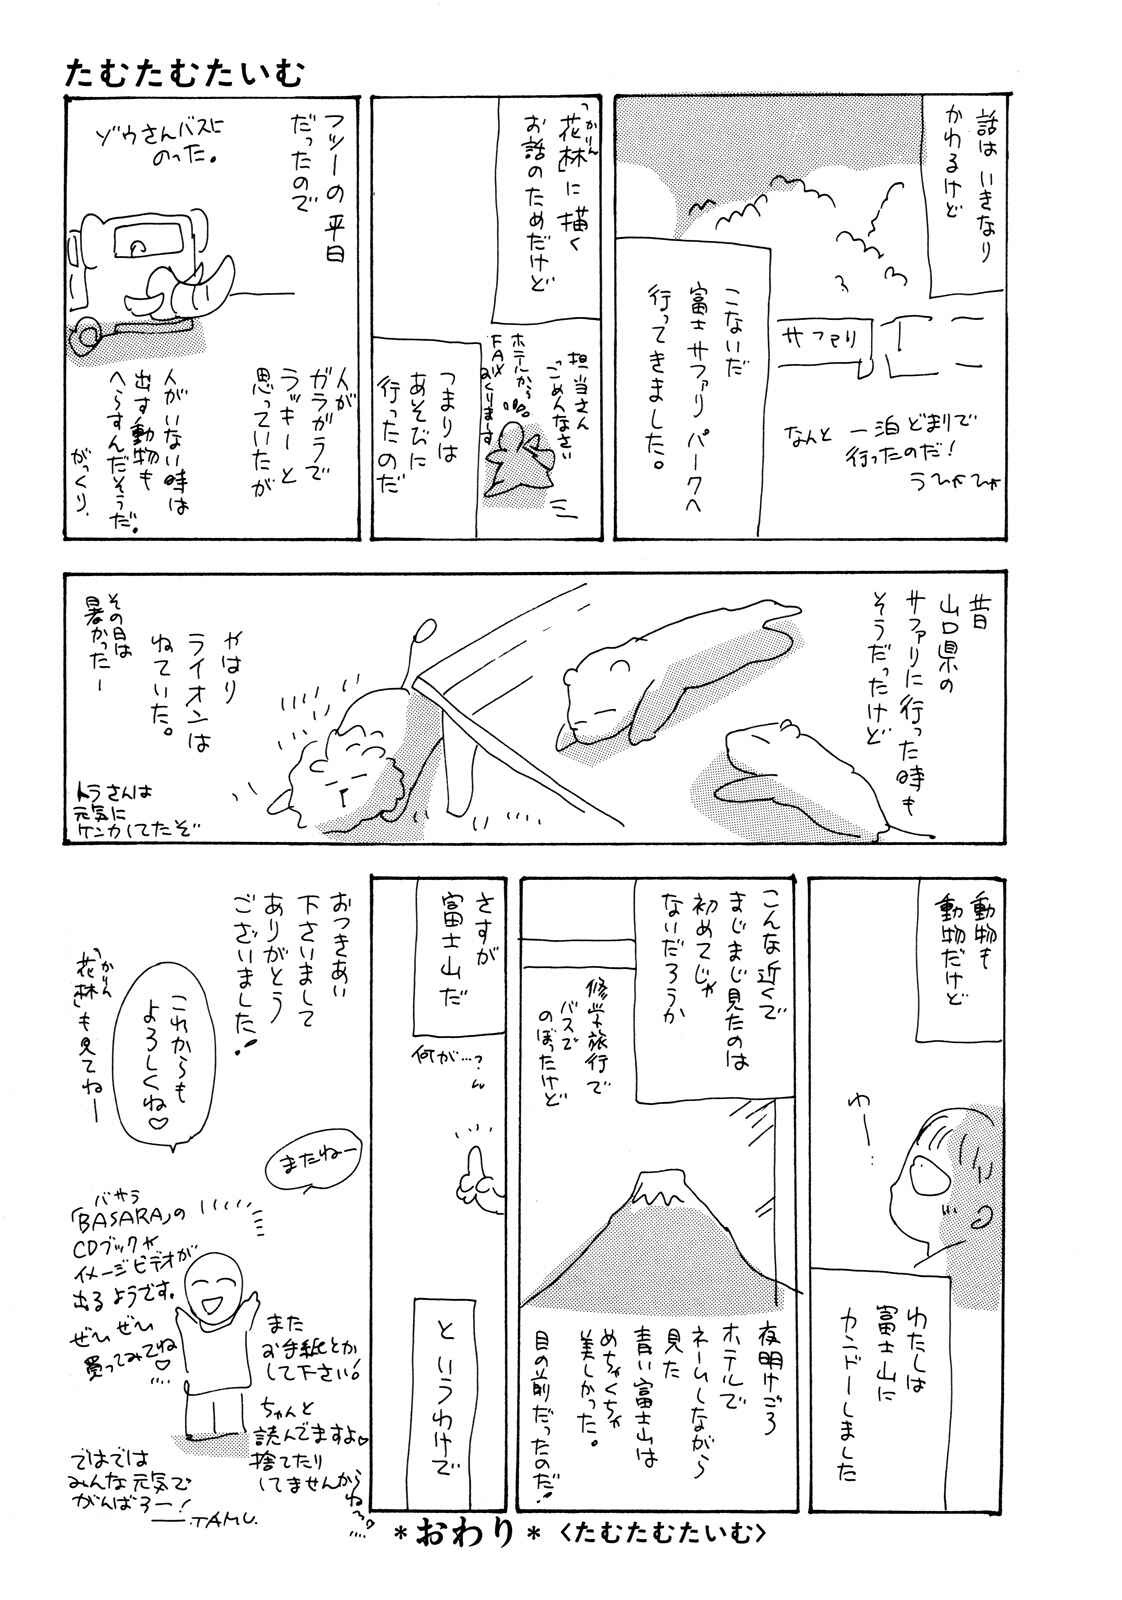 たむたむたいむ
話は いきなり
かわるけど
こないだ
富士サファリパークへ
行ってきました。
サファリ
なんと 一泊どまりで
行ったのだ!
うひゃひゃ
「花林」に描く
かりん
お話のためだけど
担当さん
ごめんなさい
ホテルから
FAXおくりまーす
つまりは
あそびに
行ったのだ
フツーの平日
だったので
ゾウさんバスに
のった。
人が
ガラガラで
ラッキーと
思っていたが
人がいない時は
出す動物も
へらすんだそうだ。
がっくり.
昔
山口県の
サファリに行った時も
そうだったけど
やはり
ライオンは
ねていた。
その日は
暑かったー
トラさんは
元気に
ケンカしてたぞ
動物も
動物だけど
わー…
わたしは
富士山に
カンドーしました
こんな近くで
まじまじ見たのは
初めてじゃ
ないだろうか
修学旅行で
バスで
のぼったけど
夜明けごろ
ホテルで
ネームしながら
見た
青い富士山は
めちゃくちゃ
美しかった。
目の前だったのだ!
さすが
富士山だ
何が…?
というわけで
おつきあい
下さいまして
ありがとう
ございました!
これからも
よろしくね♡
「花林」も見てねー
かりん
またねー
バサラ
「BASARA」の
CDブックや
イメージビデオが
出るようです。
ぜひぜひ
買ってみてね♡
また
お手紙とか
して下さい!
ちゃんと
読んでますよ♡
捨てたり
してませんから
ねー
ではでは
みんな元気で
がんばろー!
—.TAMU.
*おわり* 〈たむたむたいむ〉